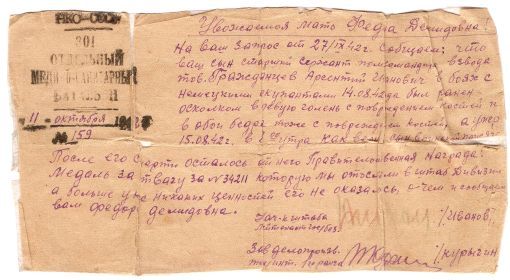 НКО-СССР
301
ОТДЕЛЬНЫЙ
МЕДИКО-САНИТАРНЫЙ
БАТАЛЬОН
"11" октября
№ 159
Уважаемая мать Федра Демидовна!
На ваш запрос от 27/IX 42г. Сообщаем: что
ваш сын старший сержант помкомандир взвода
тов. Гражданцев Арсентий Иванович в боях с
Немецкими окупантами 14.08.42года был ранен
осколком в левую голень с повреждением костей и
в обои бедра тоже с повреждением костей, а умер
15.08.42г. в утра как
После его смерти осталось от него Правительственная Награда:
Медаль за отвагу за №34211 которую мы отослали в штаб Дивизии
а больше уже никаких ценностей его не оказалось, о чем и сообщаем
вам федора демидовна.
Зам. нштаба
/Иванов/
Зав делопроизв.
/Курыгин